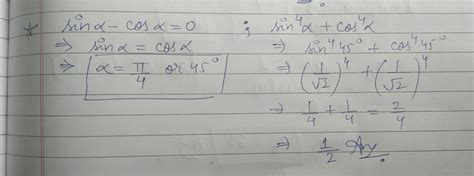 * sinα - cosα = 0 ; sin⁴α + cos⁴α
⇒ sinα = cosα ⇒ sin⁴45° + cos⁴45°
⇒ α = π/4 or 45° ⇒ (1/√2)⁴ + (1/√2)⁴
⇒ 1/4 + 1/4 = 2/4
⇒ 1/2 Ans.